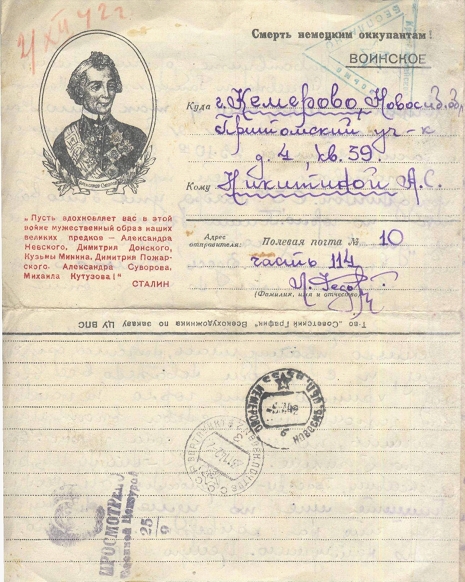 4/XII 42 г.
Смерть немецким оккупантам!
ВОИНСКОЕ
Куда г. Кемерово, Новосиб. обл
Притомский уч-к
д. 4, кв. 59.
Кому Никитиной А.С.
Александр Суворов
„Пусть вдохновляет вас в этой
войне мужественный образ наших
великих предков — Александра
Невского, Димитрия Донского,
Кузьмы Минина, Димитрия Пожар-
ского, Александра Суворова,
Михаила Кутузова!"
СТАЛИН
Адрес отправителя: Полевая почта № 10
часть 114
(Фамилия, имя и отчество)
Т-во „Советский График" Всекохудожника по заказу ЦУ ВПС
КЕМЕРОВО
СССР
ПРОСМОТРЕНО
Военной Цензурой
25